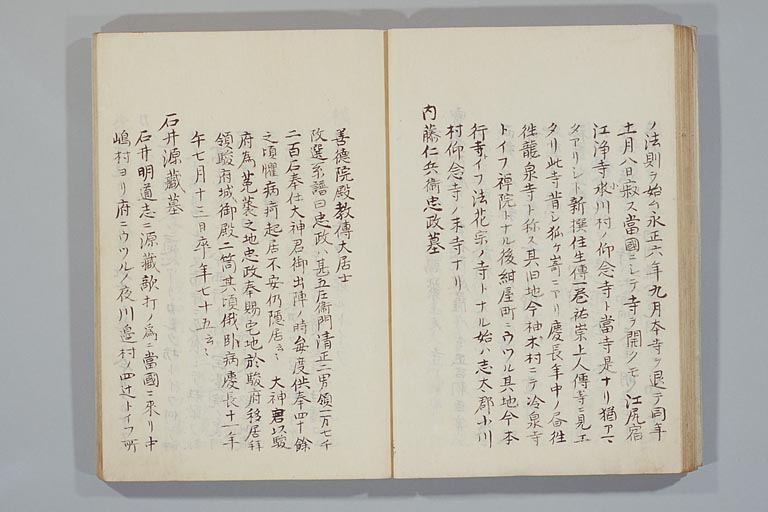 ノ法則ヲ始ム永正六年九月本寺ヲ退テ同年
十一月八日寂ス當國ニシテ寺ヲ開クモノ江尻宿
江浄寺氷川村ノ仰念寺ト當寺是ナリ猶アマ
タアリシト新撰往生傳一巻祐崇上人傳等ニ見エ
タリ此寺昔シ狐ヶ崎ニアリ慶長年中ノ㕝往
徃龍泉寺ト称ス其旧地今柚木村ニテ冷泉寺
トイフ禅院トナル後紺屋町ニウツル其地今本
行寺イフ法花宗ノ寺トナル始ハ志太郡小川
村仰念寺ノ末寺ナリ
内藤仁兵衛忠政墓
善德院殿教傳大居士
改選系譜曰忠政ハ甚五左衛門清正二男領一万七千
二百石奉仕大神君御出陣ノ時毎度供奉四十餘
之頃罹病痾起居不安仍隠居ス云々 大神君以駿
府為菟裘之地忠政奉賜宅地於駿府移居拜
領駿府城御殿二筒其頃俄卧病慶長十一年
午七月十三日卒年七十五云々
石井源蔵墓
石井明道志ニ源蔵敵打ノ為當國ニ來リ中
嶋村ヨリ府ニウツルノ夜川邉村ノ四辻トイフ所